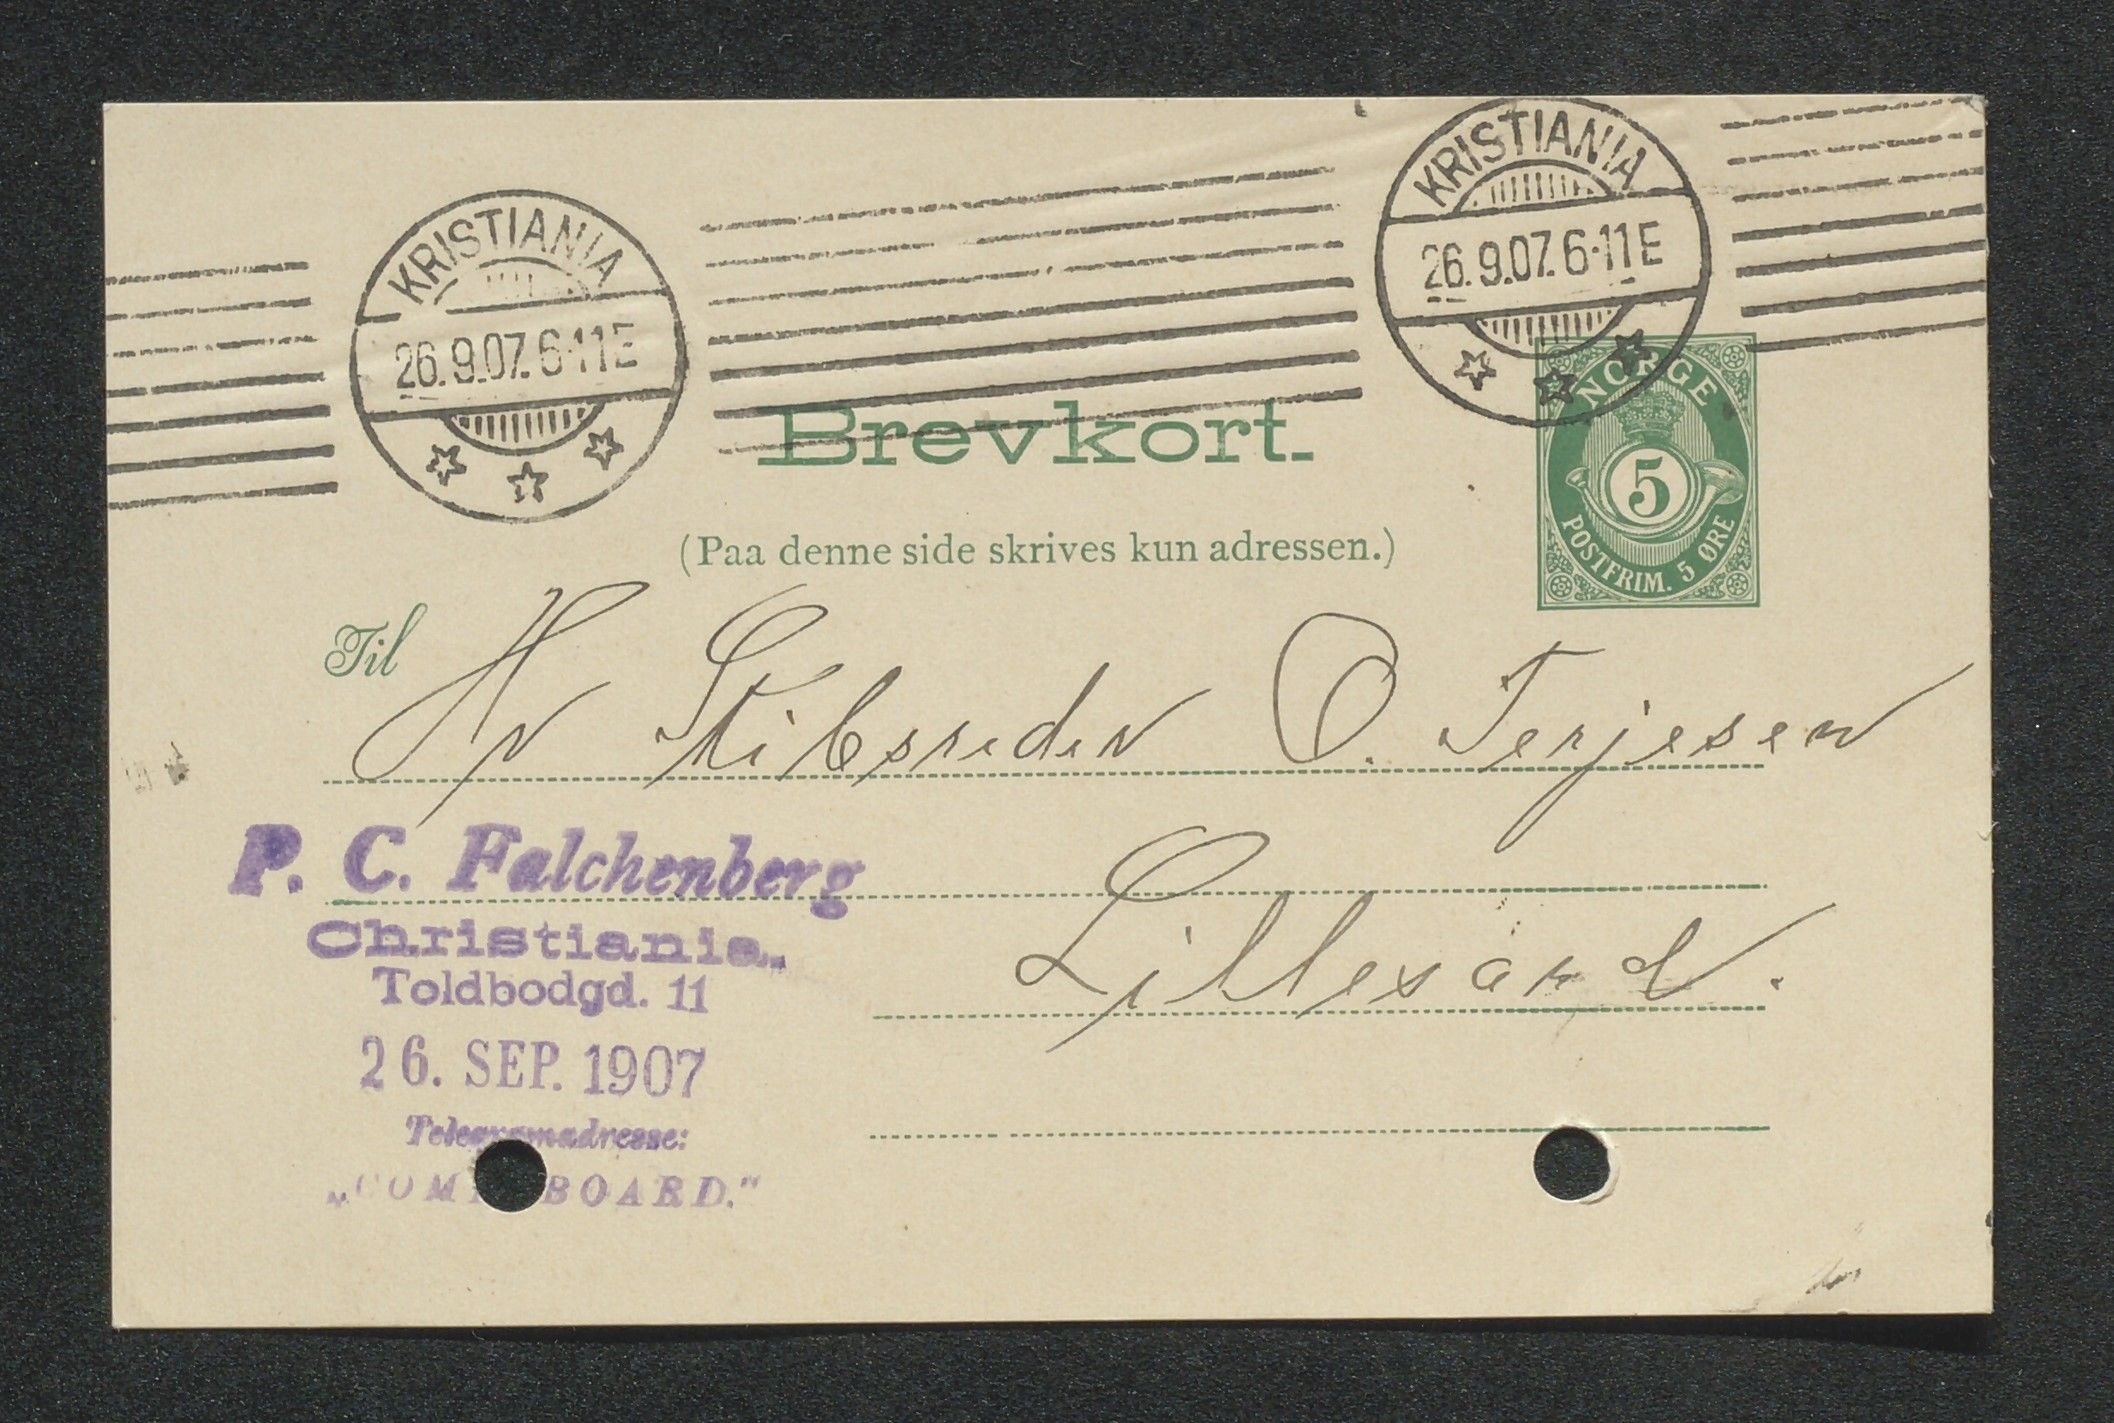 KRISTIANIA
26.9.07.6-11E
KRISTIANIA
26.9.07.6-11E
NORGE
5
POSTFRIM. 5 ØRE
Brevkort.
(Paa denne side skrives kun adressen.)
Til Hr Skibsreder O. Terjesen
Lillesand.
P. C. Falchenberg
Christiania.
Toldbodgd. 11
26. SEP. 1907
Telegramadresse:
BOARD."